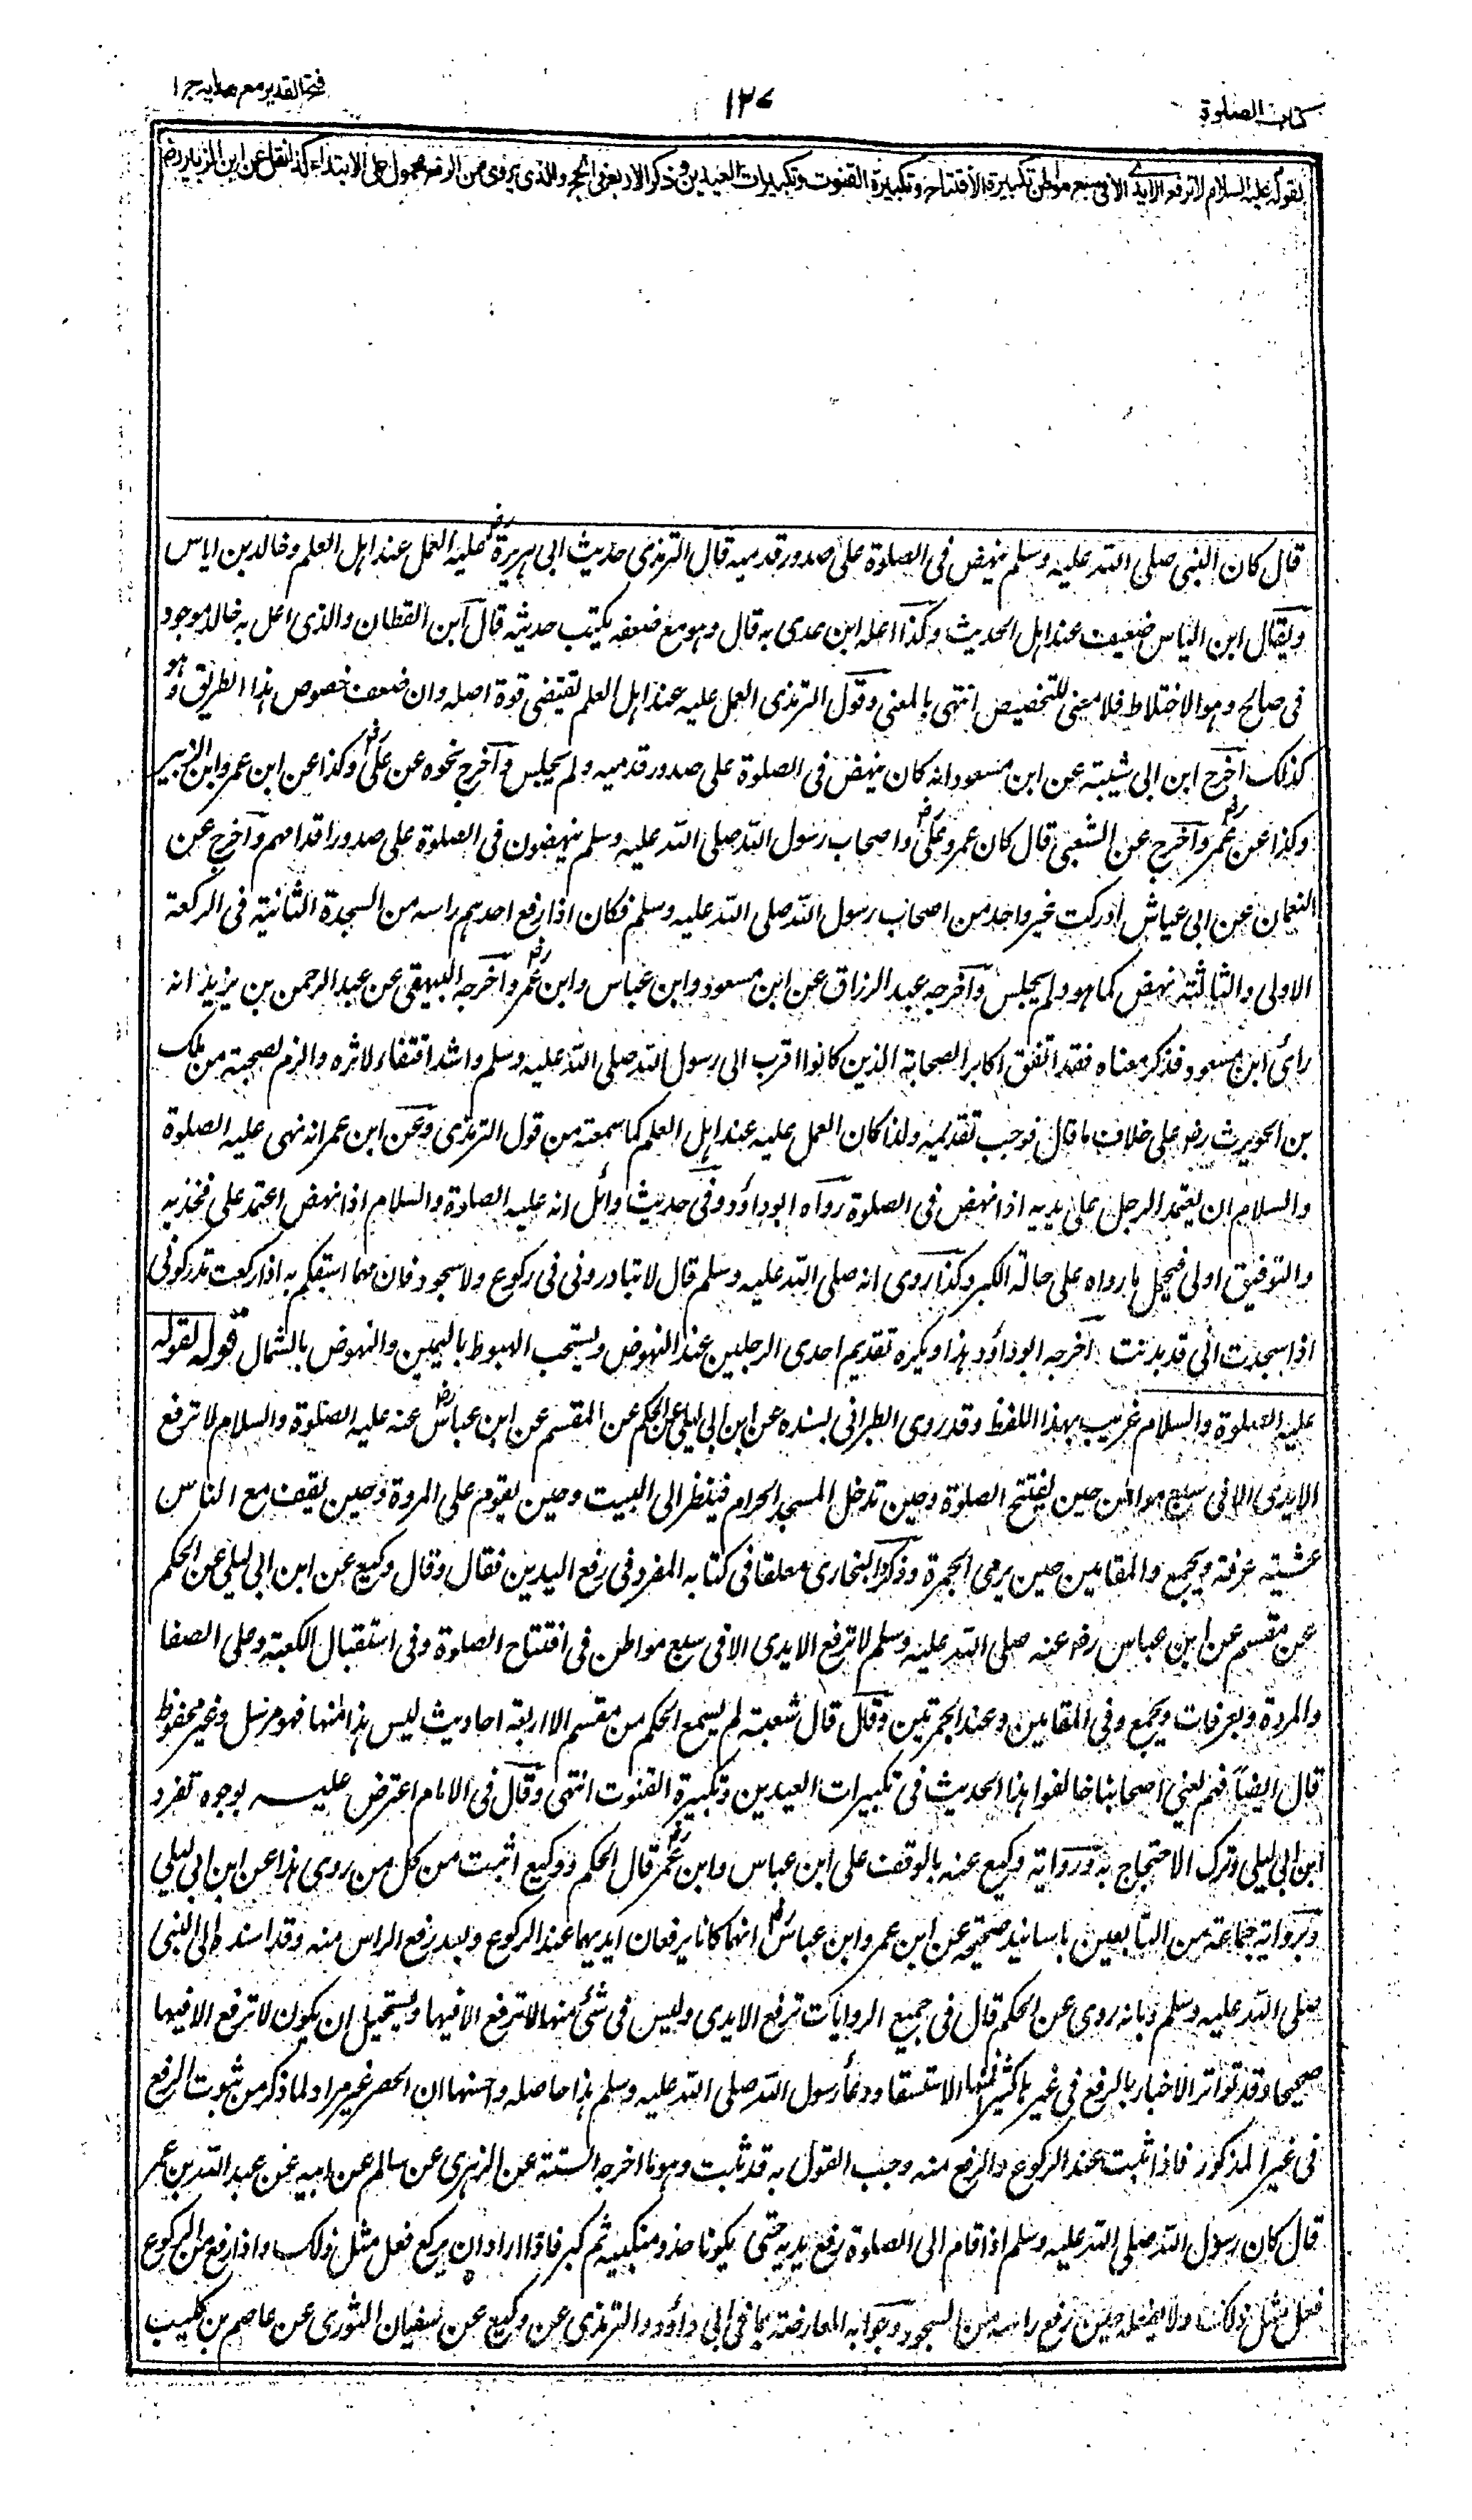 كتاب الصلوة
١٢٧
فتح القدير مع هدايه ج ١
لقوله عليه السلام لا ترفع الايدي الا في سبع مواطن تكبيرة الافتتاح وتكبيرة القنوت وتكبيرات العيدين وذكر الاربع في الحج والذي يروى من الرفع محمول على الابتداء كذا نقل عن ابن الزبير رض
قال كان النبي صلى الله عليه وسلم ينهض في الصلوة على صدور قدميه قال الترمذي حديث ابي هريرة رض عليه العمل عند اهل العلم وخالد بن اياس
ويقال ابن الياس ضعيف عند اهل الحديث وكذا اعله ابن عدي به قال وهو مع ضعفه يكتب حديثه قال ابن القطان والذي اعل به خالد موجود
في صالح وهو الاختلاط فلا معنى للتخصيص انتهى بالمعنى وقول الترمذي العمل عليه عند اهل العلم يقتضي قوة اصله وان ضعف خصوص هذا الطريق وهو
كذلك اخرج ابن ابي شيبة عن ابن مسعود انه كان ينهض في الصلوة على صدور قدميه ولم يجلس واخرج نحوه عن علي رض وكذا عن ابن عمر وابن الزبير
وكذا عن عمر رض واخرج عن الشعبي قال كان عمر وعلي رض واصحاب رسول الله صلى الله عليه وسلم ينهضون في الصلوة على صدور اقدامهم واخرج عن
النعمان عن ابي عياش ادركت غير واحد من اصحاب رسول الله صلى الله عليه وسلم فكان اذا رفع احدهم راسه من السجدة الثانية في الركعة
الاولى والثالثة نهض كما هو ولم يجلس واخرجه عبد الرزاق عن ابن مسعود وابن عباس وابن عمر رض واخرجه البيهقي عن عبد الرحمن بن يزيد انه
رأى ابن مسعود فذكر معناه فقد اتفق اكابر الصحابة الذين كانوا اقرب الى رسول الله صلى الله عليه وسلم واشد اقتفاء لاثره والزم لصحبته من مالك
بن الحويرث رض على خلاف ما قال فوجب تقديمه ولذا كان العمل عليه عند اهل العلم كما سمعته من قول الترمذي وعن ابن عمر انه نهى عليه الصلوة
والسلام ان يعتمد الرجل على يديه اذا نهض في الصلوة رواه ابو داؤد وفي حديث وائل انه عليه الصلوة والسلام اذا نهض اعتمد على فخذيه
والتوفيق اولى فيحمل ما رواه على حالة الكبر وكذا روى انه صلى الله عليه وسلم قال لا تبادروني في ركوع ولا سجود فان مهما اسبقكم به اذا ركعت تدركوني
اذا سجدت اني قد بدنت اخرجه ابو داؤد هذا ويكره تقديم احدى الرجلين عند النهوض ويستحب الهبوط باليمين والنهوض بالشمال قوله لقوله
عليه الصلوة والسلام غريب بهذا اللفظ وقد روى الطبراني بسنده عن ابن ابي ليلى عن الحكم عن المقسم عن ابن عباس رض عنه عليه الصلوة والسلام لا ترفع
الايدي الا في سبع مواطن حين يفتتح الصلوة وحين تدخل المسجد الحرام فينظر الى البيت وحين يقوم على المروة وحين يقف مع الناس
عشية عرفة وبجمع والمقامين حين يرمى الجمرة وذكره البخاري معلقا في كتابه المفرد في رفع اليدين فقال وقال وكيع عن ابن ابي ليلى عن الحكم
عن مقسم عن ابن عباس رض عنه صلى الله عليه وسلم لا ترفع الايدي الا في سبع مواطن في افتتاح الصلوة وفي استقبال الكعبة وعلى الصفا
والمروة وبعرفات وبجمع وفي المقامين وعند الجمرتين وقال قال شعبة لم يسمع الحكم من مقسم الا اربعة احاديث ليس هذا منها فهو مرسل وغير محفوظ
قال ايضا فهم يعني اصحابنا خالفوا هذا الحديث في تكبيرات العيدين وتكبيرة القنوت انتهى وقال في الامام اعترض عليه بوجوه تفرد
ابن ابي ليلى وترك الاحتجاج به ورواية وكيع عنه بالوقف على ابن عباس وابن عمر رض قال الحكم ووكيع اثبت من كل من روى هذا عن ابن ابي ليلى
وبرواية جماعة من التابعين باسانيد صحيحة عن ابن عمر وابن عباس رض انهما كانا يرفعان ايديهما عند الركوع وبعد رفع الراس منه وقد اسنداه الى النبي
صلى الله عليه وسلم وبانه روى عن الحكم قال في جميع الروايات ترفع الايدي وليس في شئ منها لا ترفع الا فيها ويستحيل ان يكون لا ترفع الا فيها
صحيحا وقد تواتر الاخبار بالرفع في غيرها كثيرا فمنها الاستسقا ودعأ رسول الله صلى الله عليه وسلم هذا حاصله واحسنها ان الحصر غير مراد لما ذكر من ثبوت الرفع
في غير المذكور فاذا ثبت عند الركوع والرفع منه وجب القول به قد ثبت وهو ما اخرجه الستة عن الزهري عن سالم عن ابيه عن عبد الله بن عمر
قال كان رسول الله صلى الله عليه وسلم اذا قام الى الصلوة رفع يديه حتى يكونا حذو منكبيه ثم كبر فاذا اراد ان يركع فعل مثل ذلك واذا رفع من الركوع
فعل مثل ذلك ولا يفعله حين رفع راسه من السجود وجوابه المعارضة بما في ابي داؤد والترمذي عن وكيع عن سفيان الثوري عن عاصم بن كليب